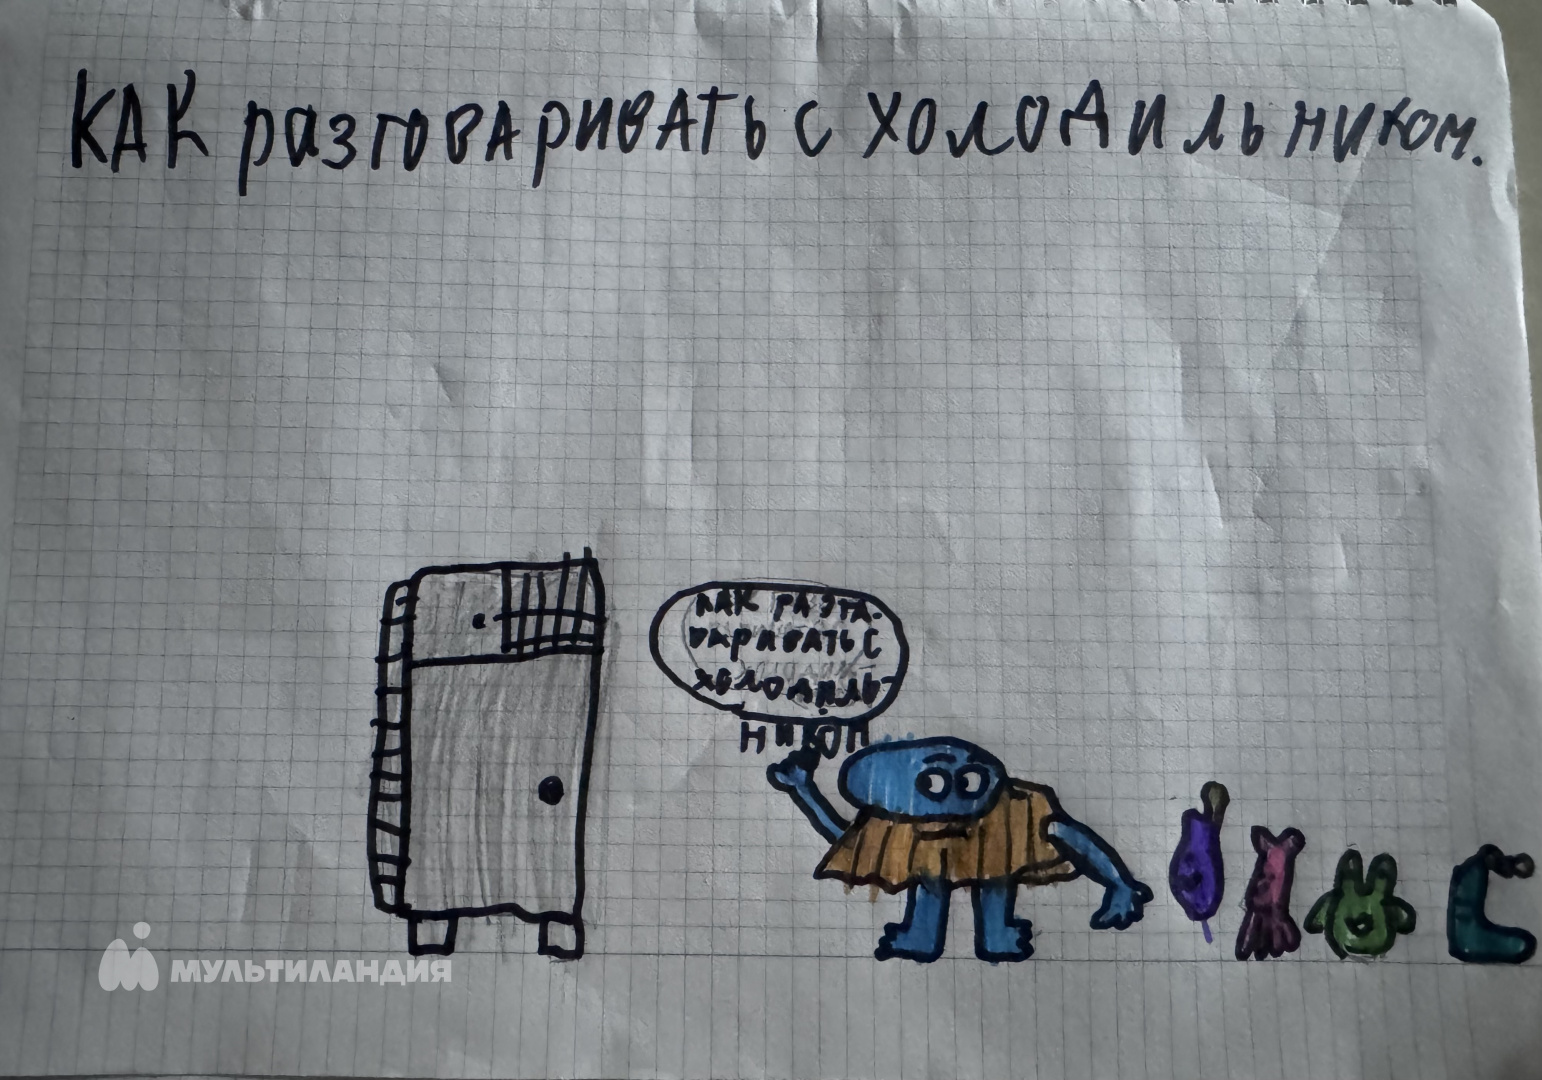 КАК разговаривать с холодильником.
КАК РАЗГА-
ВАРИВАТЬ С
ХОЛОДИЛЬ-
НИКОМ
МУЛЬТИЛАНДИЯ